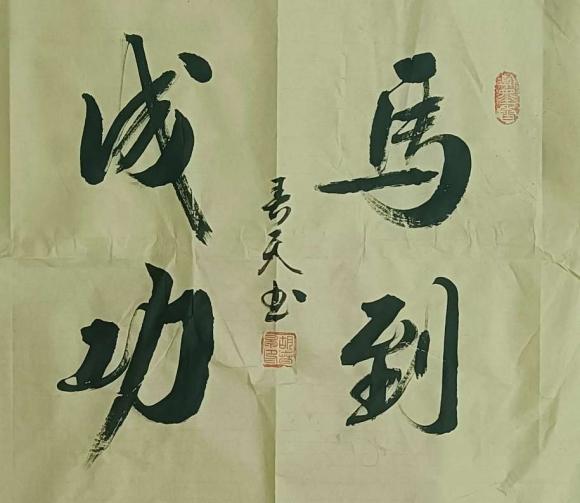 馬到
成功
天书